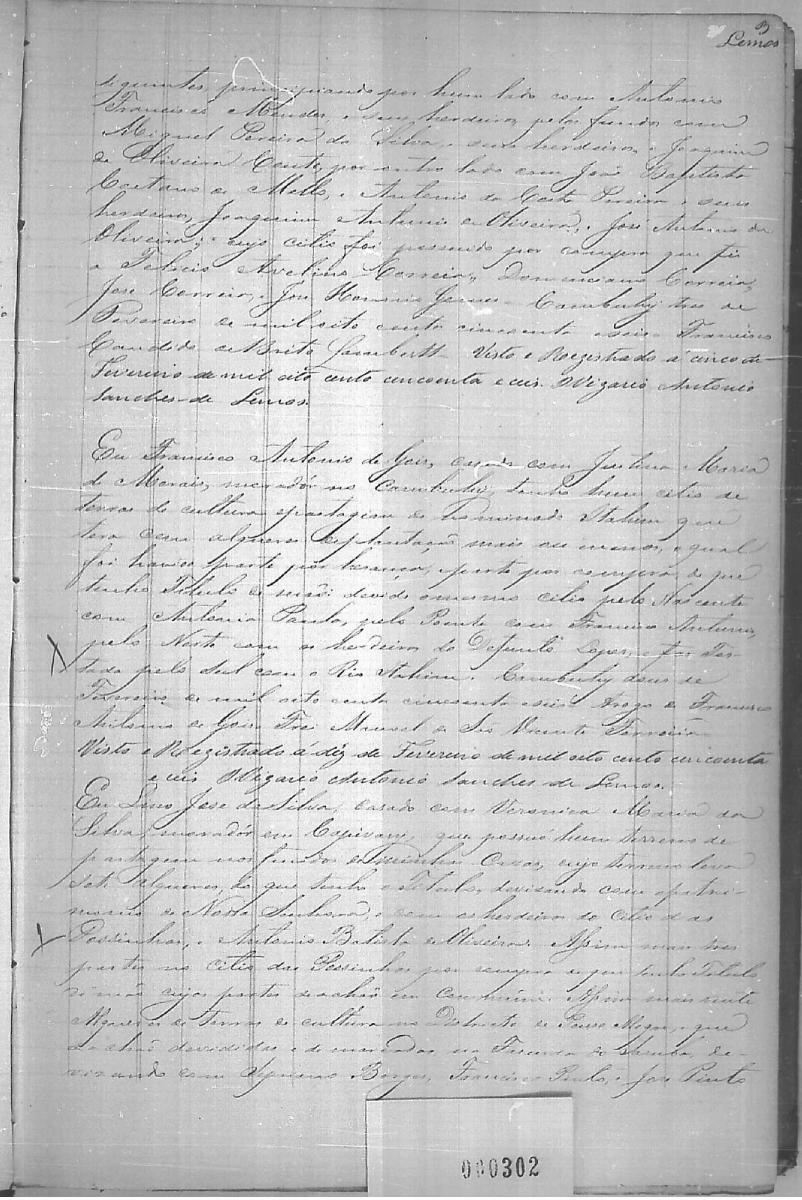 3
Lemos
seguintes, principiando por hum lado com Antonio
Francisco Mendes, e seus herdeiros, pelos fundos com
Miguel Pereira da Silva, e seus herdeiros, e Joaquim
de Oliveira Couto, por outro lado com João Baptista
Caetano de Mello, e Antonio da Costa Pereira e seus
herdeiros, Joaquim Antonio de Oliveira, e José Antonio de
Oliveira; cujo citio foi possuido por compra que fis
a Felicio Avelino Correia, Domiciano Correia,
José Correia, e José Homorio Gomes. Cambuhy tres de
Fevereiro de mil oito cento cincoenta e seis. Francisco
Candido de Brito Lambertt. Visto e Rezistrado á cinco de
Fevereiro de mil oito cento cincoenta e ceis. O Vigario Antonio
Sanches de Lemos.
Eu Francisco Antonio de Gois, casado com Justina Maria
de Morais, moradôr no Cambuhy, tenho hum citio de
terras de cultura e pastagem de nominado Itahim que
tera cem alqueres de plantação mais ou menos, o qual
foi havido parte por herança, e parte por compra, de que
tenho Titulo e mais devide o mesmo citio pelo Nascente
com Antonio Paulo, pelo Poente com Francisco Antunes,
pelo Norte com os herdeiros do Defunto Lopes, e
pelo Sul com o Rio Itahim. Cambuhy dous de
Fevereiro de mil oito cento cincoenta e seis. Arogo de Francisco
Antonio de Gois Frei Manuel de São Vicente Ferreira
Visto e Rezistrado á déz de Fevereiro de mil oito cento cincoenta
e ceis O Vigario Antonio Sanches de Lemos.
Eu Lino José da Silva, casado com Veronica Maria da
Silva, moradôr em Capivary, que possuo hum terreno de
pastagem nos fundos de minhas Casas, cujo terreno leva
sete alqueres, do que tenho o Titulo, devisando com o patri-
monio de Nossa Senhora, e com os herdeiros do Citio das
Possinhas, e Antonio Batista de Oliveira. Assim mais tres
partes no citio das Possinhas por compra e que tenho Titulo
cujas partes se achão em Commum. Assim mais vinte
Alqueres de terras de cultura no Districto de Pouso Alegre, e que
se achão devididas e de marcadas na Fazenda do de-
vizando com Borges, Francisco Paulo, e José Pinto
000302